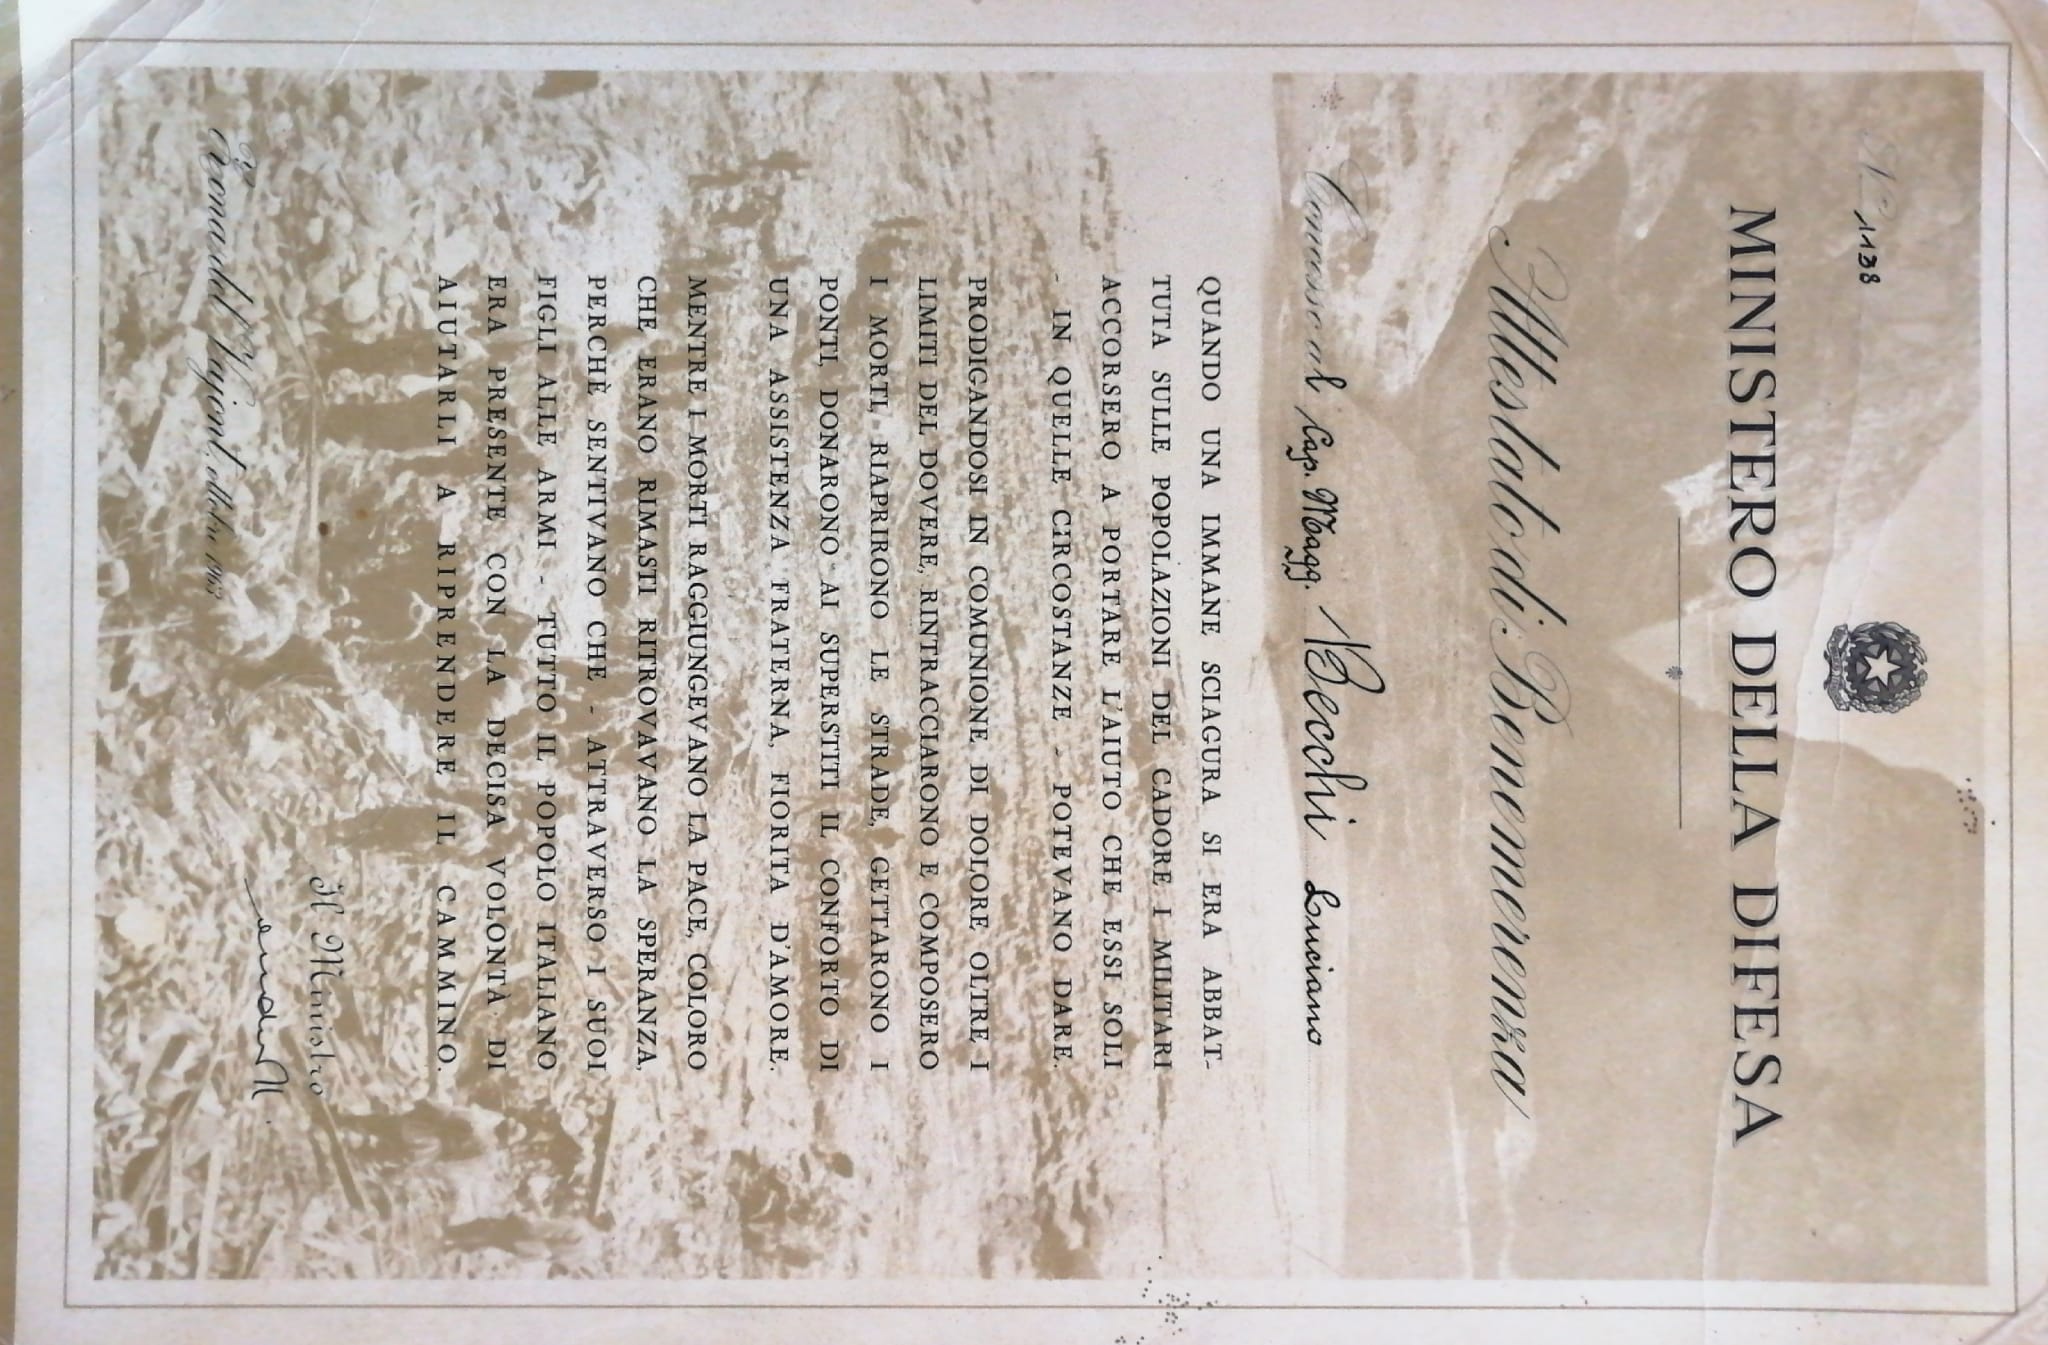 N° 1138
MINISTERO DELLA DIFESA
Attestato di Benemerenza
Concesso al Cap. Magg. Becchi Luciano
QUANDO UNA IMMANE SCIAGURA SI ERA ABBAT-
TUTA SULLE POPOLAZIONI DEL CADORE I MILITARI
ACCORSERO A PORTARE L'AIUTO CHE ESSI SOLI
- IN QUELLE CIRCOSTANZE - POTEVANO DARE.
PRODIGANDOSI IN COMUNIONE DI DOLORE OLTRE I
LIMITI DEL DOVERE, RINTRACCIARONO E COMPOSERO
I MORTI, RIAPRIRONO LE STRADE, GETTARONO I
PONTI, DONARONO AI SUPERSTITI IL CONFORTO DI
UNA ASSISTENZA FRATERNA, FIORITA D'AMORE.
MENTRE I MORTI RAGGIUNGEVANO LA PACE, COLORO
CHE ERANO RIMASTI RITROVAVANO LA SPERANZA,
PERCHÈ SENTIVANO CHE - ATTRAVERSO I SUOI
FIGLI ALLE ARMI - TUTTO IL POPOLO ITALIANO
ERA PRESENTE CON LA DECISA VOLONTÀ DI
AIUTARLI A RIPRENDERE IL CAMMINO.
Il Ministro
Zona del Vajont, ottobre 1963